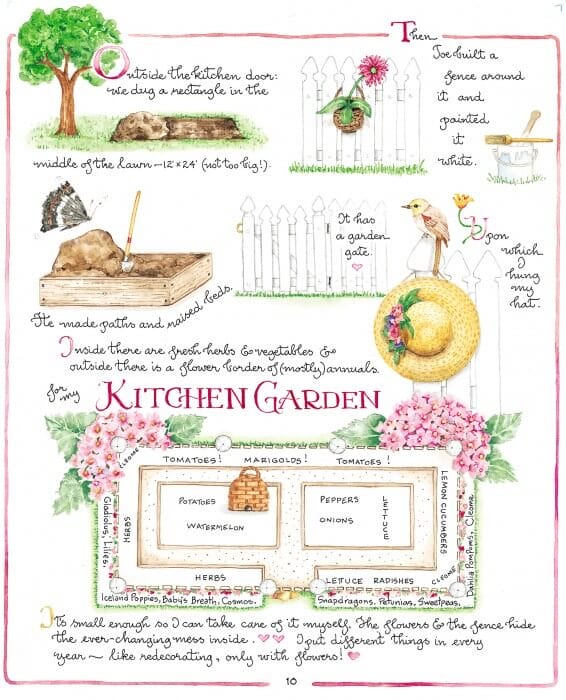 Outside the kitchen door:
we dug a rectangle in the
middle of the lawn — 12' x 24' (not too big!).
Then
Joe built a
fence around
it and
painted
it
white.
It has
a garden
gate.
Upon
which
I
hung
my
hat.
He made paths and raised beds.
Inside there are fresh herbs & vegetables &
outside there is a flower border of (mostly) annuals.
for my
KITCHEN GARDEN
CLEOME
TOMATOES! MARIGOLDS! TOMATOES!
Gladiolus, Lilies,
HERBS
POTATOES
WATERMELON
PEPPERS
ONIONS
LETTUCE
LEMON CUCUMBERS
Dahlia Pompoms, Cleome
HERBS
LETTUCE RADISHES
CLEOME
Iceland Poppies, Baby's Breath, Cosmos,
Snapdragons, Petunias, Sweetpeas,
It's small enough so I can take care of it myself. The flowers & the fence hide
the ever-changing mess inside. I put different things in every
year — like redecorating, only with flowers!
10